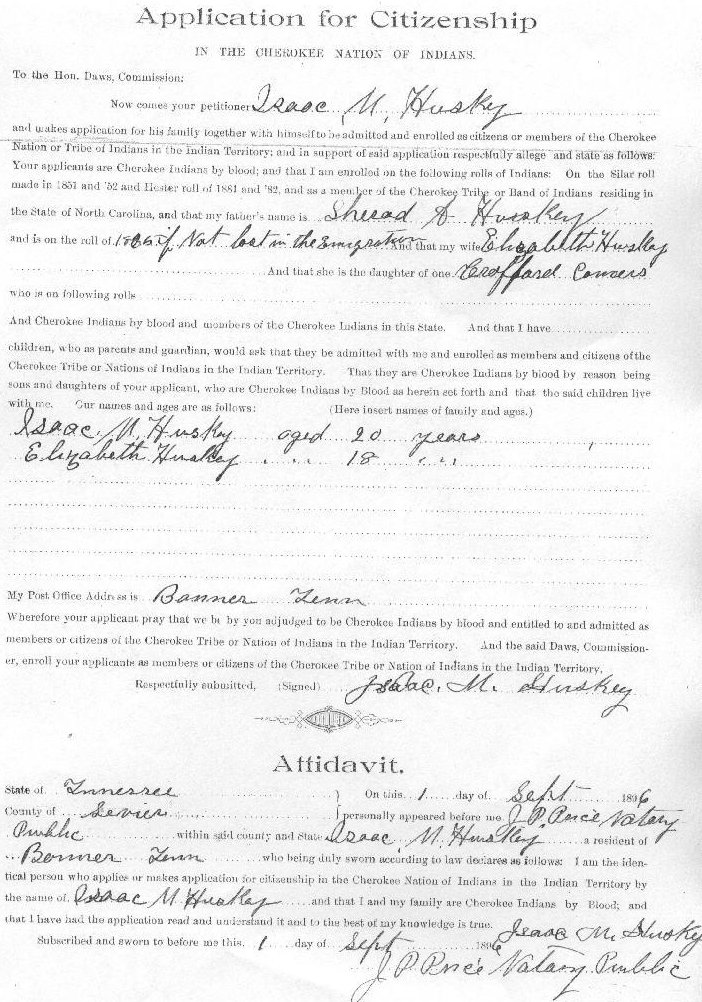 Application for Citizenship
IN THE CHEROKEE NATION OF INDIANS.
To the Hon. Daws, Commission:
Now comes your petitioner Isaac. M. Husky
and makes application for his family together with himself to be admitted and enrolled as citizens or members of the Cherokee
Nation or Tribe of Indians in the Indian Territory; and in support of said application respectfully allege and state as follows:
Your applicants are Cherokee Indians by blood; and that I am enrolled on the following rolls of Indians: On the Silar roll
made in 1851 and '52 and Hester roll of 1881 and '82, and as a member of the Cherokee Tribe or Band of Indians residing in
the State of North Carolina, and that my father's name is Sherad A Huskey
and is on the roll of if Not lost in the Emigration And that my wife Elizabeth Huskey
And that she is the daughter of one Crofford Coners
who is on following rolls
And Cherokee Indians by blood and members of the Cherokee Indians in this State. And that I have
children, who as parents and guardian, would ask that they be admitted with me and enrolled as members and citizens of the
Cherokee Tribe or Nations of Indians in the Indian Territory. That they are Cherokee Indians by blood by reason being
sons and daughters of your applicant, who are Cherokee Indians by Blood as herein set forth and that the said children live
with me. Our names and ages are as follows: (Here insert names of family and ages.)
Isaac. M. Husky aged 20 years
Elizabeth Huskey " " 18 " "
My Post Office Address is Banner Tenn
Wherefore your applicant pray that we be by you adjudged to be Cherokee Indians by blood and entitled to and admitted as
members or citizens of the Cherokee Tribe or Nation of Indians in the Indian Territory. And the said Daws, Commission-
er, enroll your applicants as members or citizens of the Cherokee Tribe or Nation of Indians in the Indian Territory.
Respectfully submitted, (Signed) Isaac. M. Huskey
Affidavit.
State of Tnnessee } On this 1 day of Sept 1896
County of Sevier } personally appeared before me J. P. Price Notary
Public within said county and State Isaac. M. Huskey a resident of
Banner Tenn who being duly sworn according to law declares as follows: I am the iden-
tical person who applies or makes application for citizenship in the Cherokee Nation of Indians in the Indian Territory by
the name of Isaac M Huskey and that I and my family are Cherokee Indians by Blood; and
that I have had the application read and understand it and to the best of my knowledge is true. Isaac M. Husky
Subscribed and sworn to before me this 1 day of Sept 1896
J. P. Price Notary Public